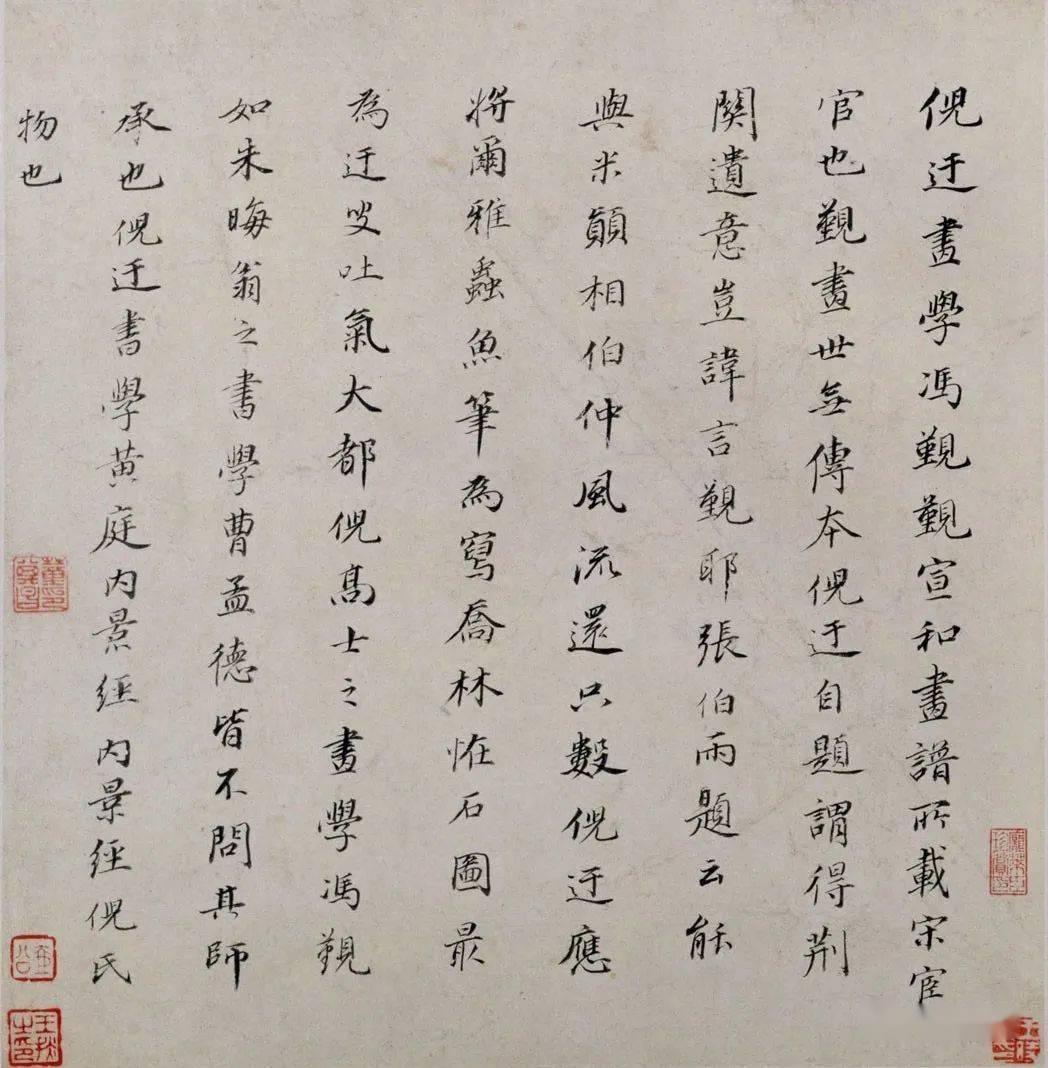 倪迂畫學馮覲覲宣和畫譜所載宋宦
官也覲畫世無傳本倪迂自題謂得荆
關遺意豈諱言覲耶張伯雨題云能
與米顛相伯仲風流還只數倪迂應
將爾雅蟲魚筆為寫喬林恠石圖最
為迂叟吐氣大都倪髙士之畫學馮覲
如朱晦翁之書學曹孟德皆不問其師
承也倪迂書學黄庭内景經内景經倪氏
物也